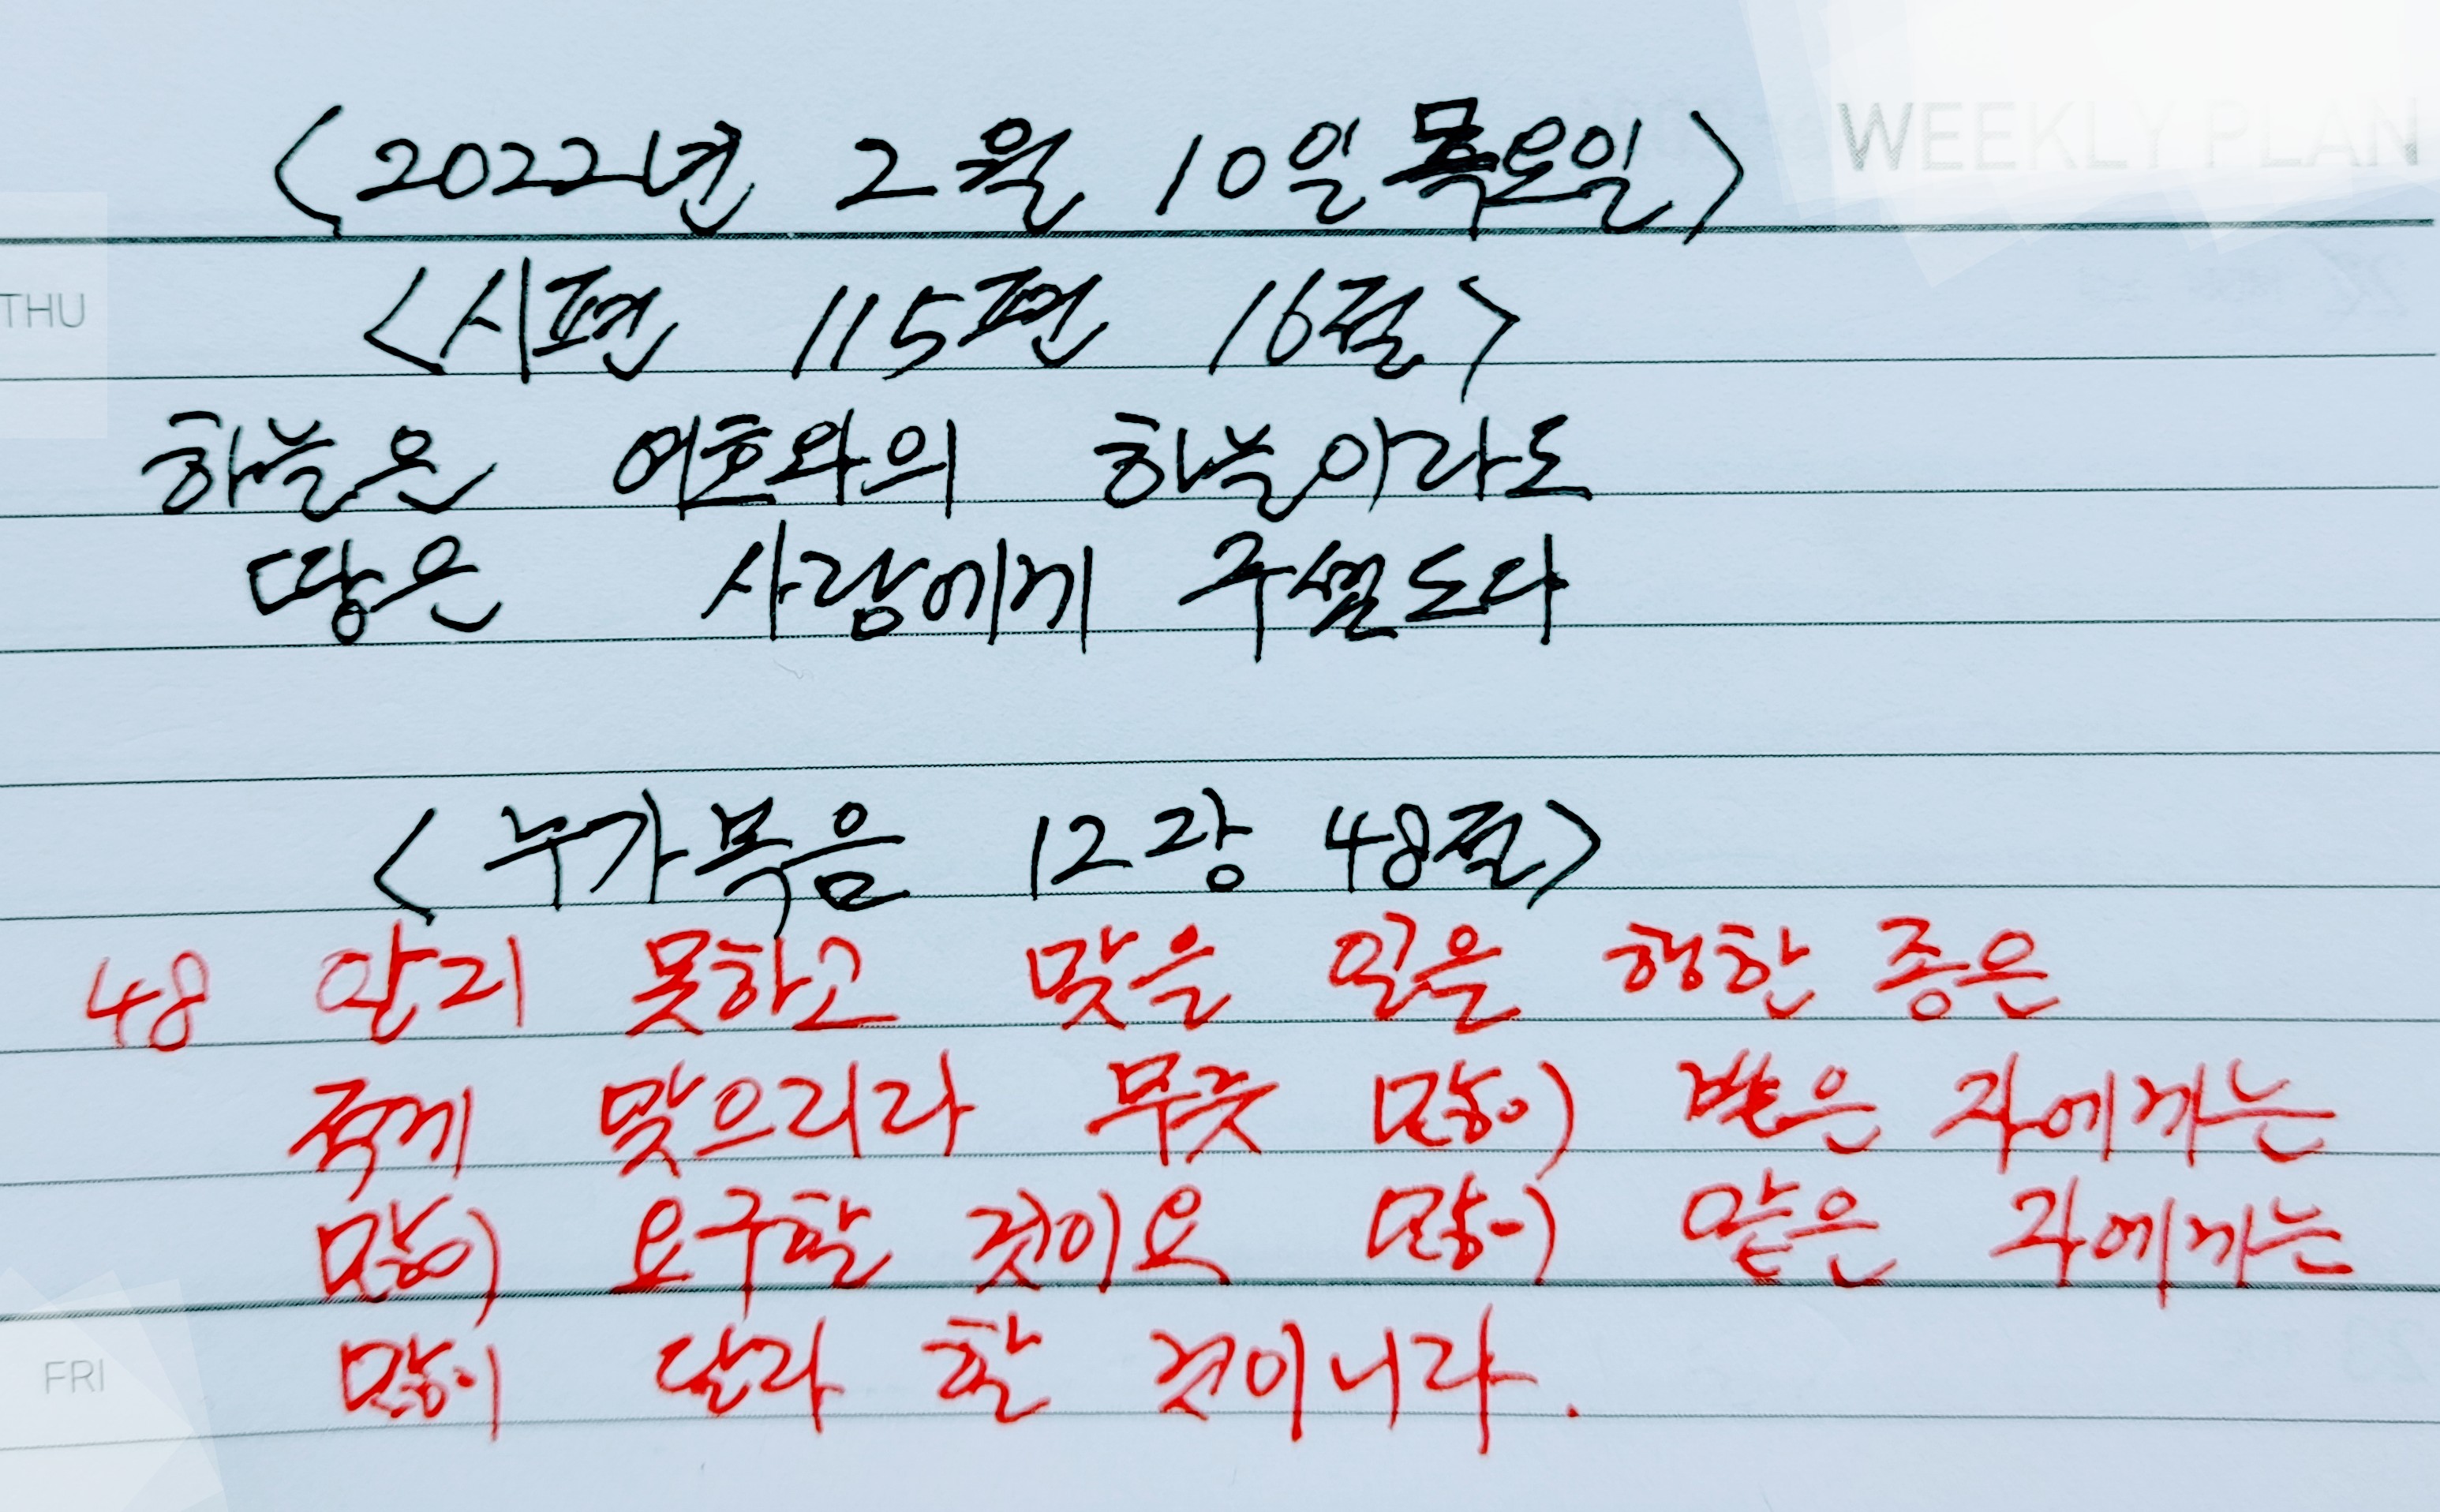 WEEKLY PLAN
<2022년 2월 10일 목요일>
THU
<시편 115편 16절>
하늘은 여호와의 하늘이라도
땅은 사람에게 주셨도다
<누가복음 12장 48절>
48 알지 못하고 맞을 일을 행한 종은
적게 맞으리라 무릇 많이 받은 자에게는
많이 요구할 것이요 많이 맡은 자에게는
FRI
많이 달라 할 것이니라.